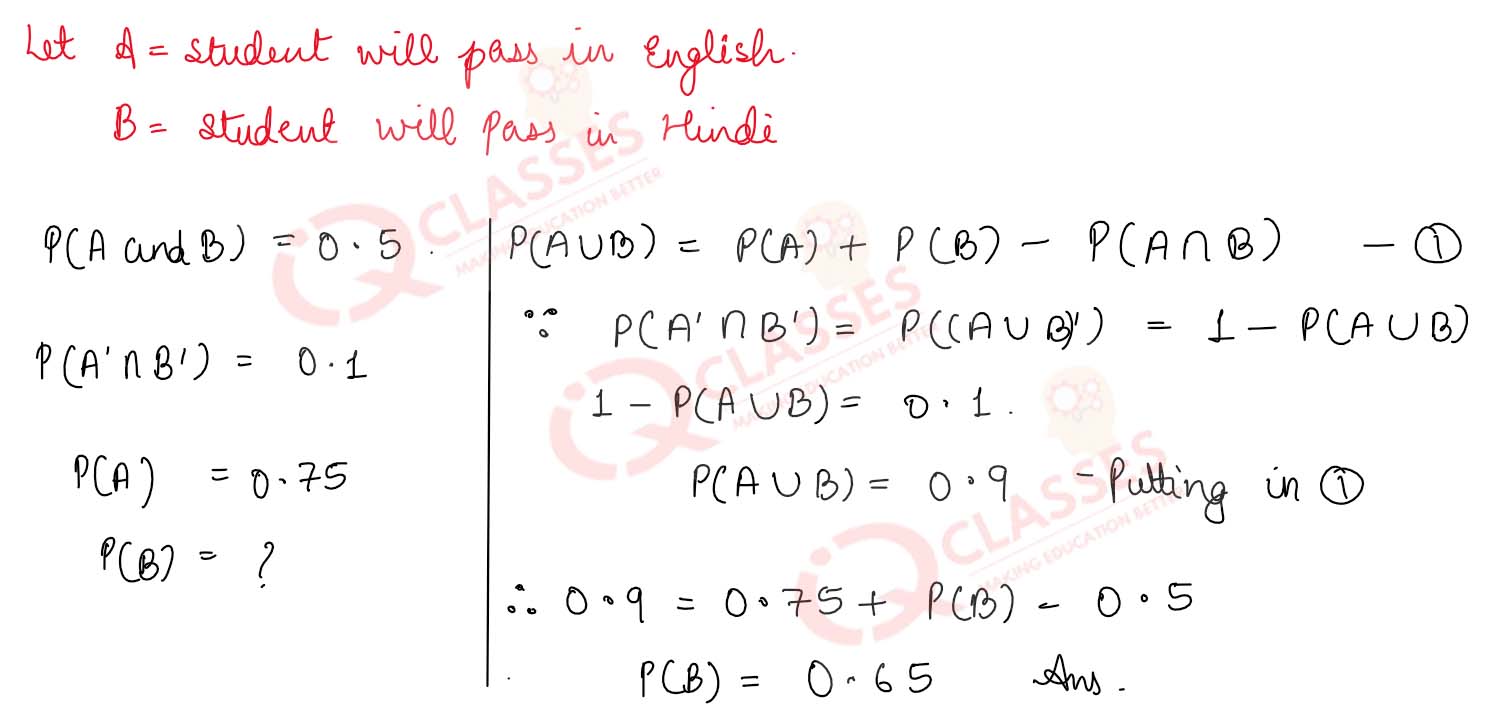 Let A = student will pass in English.
B = student will pass in Hindi
P(A and B) = 0.5
P(A'∩B') = 0.1
P(A) = 0.75
P(B) = ?
P(A∪B) = P(A) + P(B) - P(A∩B) - ①
∵ P(A'∩B') = P((A∪B)') = 1 - P(A∪B)
1 - P(A∪B) = 0.1.
P(A∪B) = 0.9 - Putting in ①
∴ 0.9 = 0.75 + P(B) - 0.5
P(B) = 0.65 Ans.
iQ CLASSES
MAKING EDUCATION BETTER
iQ CLASSES
MAKING EDUCATION BETTER
iQ CLASSES
MAKING EDUCATION BETTER